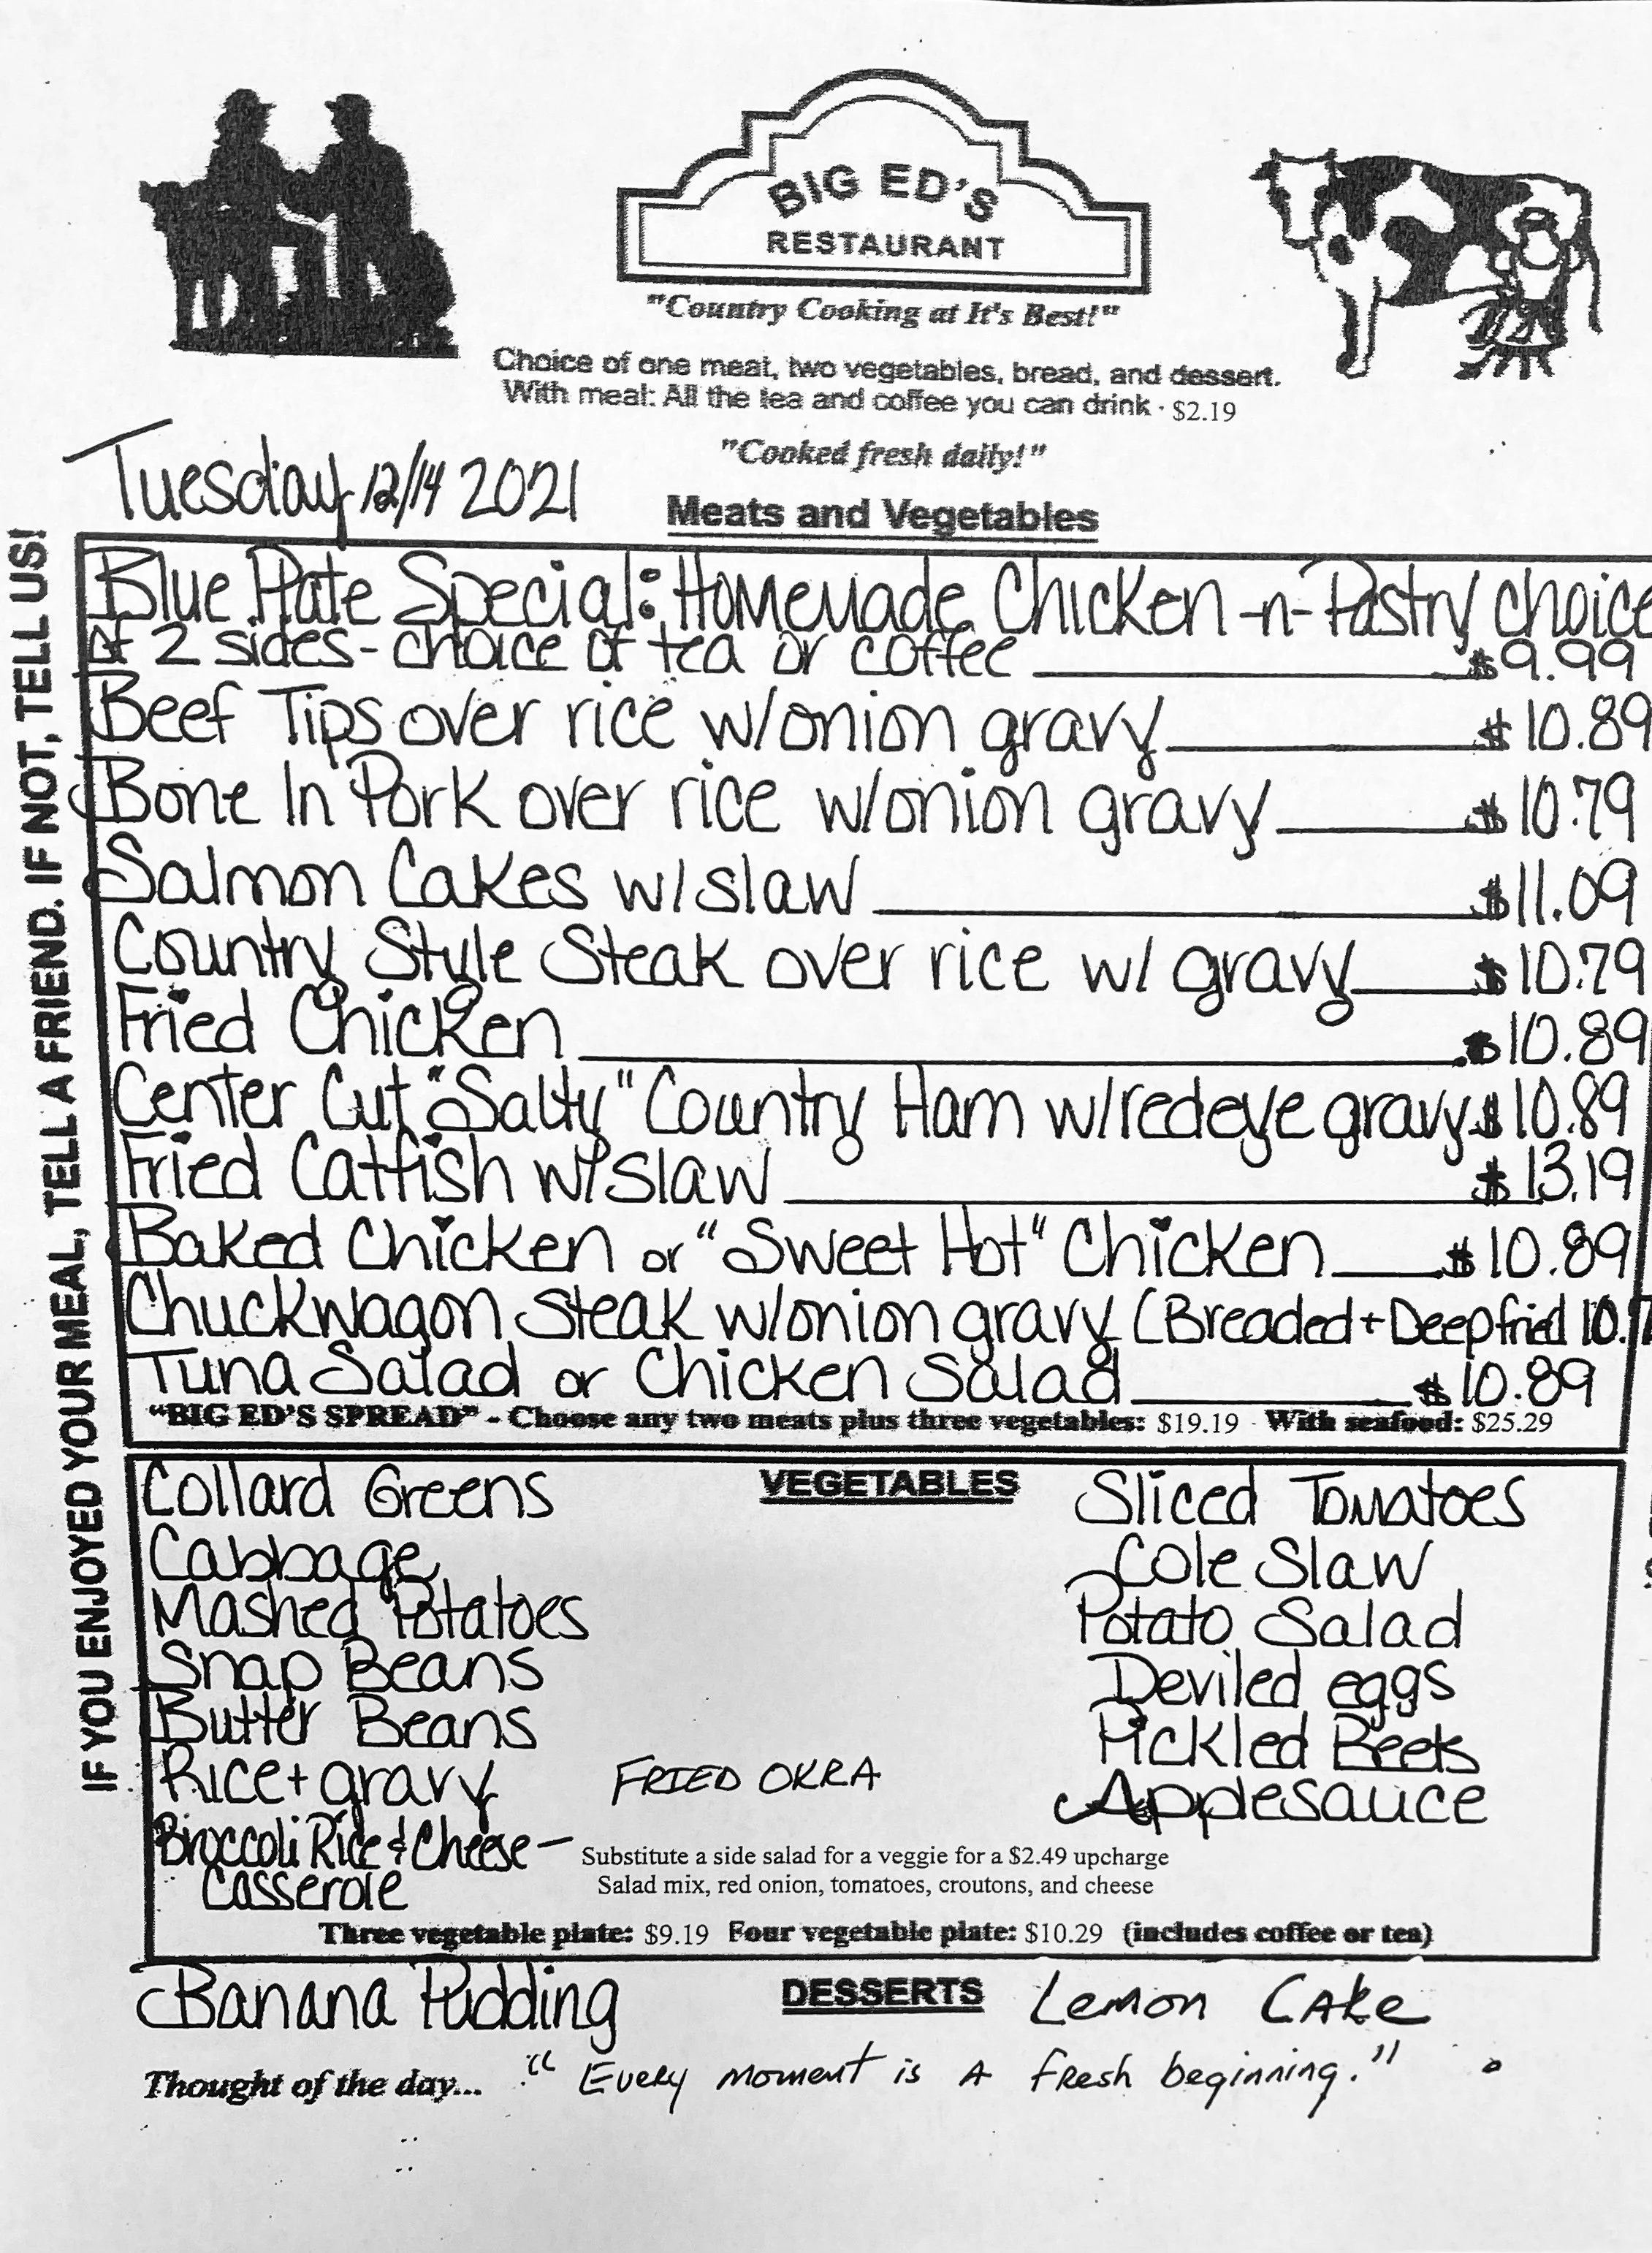 BIG ED'S
RESTAURANT
"Country Cooking at It's Best!"
Choice of one meat, two vegetables, bread, and dessert.
With meal: All the tea and coffee you can drink · $2.19
"Cooked fresh daily!"
Tuesday 12/14 2021
Meats and Vegetables
IF YOU ENJOYED YOUR MEAL, TELL A FRIEND. IF NOT, TELL US!
Blue Plate Special: Homemade Chicken -n- Pastry choice
of 2 sides - choice of tea or coffee $9.99
Beef Tips over rice w/onion gravy $10.89
Bone In Pork over rice w/onion gravy $10.79
Salmon Cakes w/slaw $11.09
Country Style Steak over rice w/ gravy $10.79
Fried Chicken $10.89
Center Cut "Salty" Country Ham w/redeye gravy $10.89
Fried Catfish w/slaw $13.19
Baked Chicken or "Sweet Hot" Chicken $10.89
Chuckwagon Steak w/onion gravy (Breaded + Deep fried
Tuna Salad or Chicken Salad $10.89
"BIG ED'S SPREAD" - Choose any two meats plus three vegetables: $19.19 · With seafood: $25.29
VEGETABLES
Collard Greens
Cabbage
Mashed Potatoes
Snap Beans
Butter Beans
Rice + gravy
Broccoli Rice & Cheese -
Casserole
FRIED OKRA
Sliced Tomatoes
Cole Slaw
Potato Salad
Deviled eggs
Pickled Beets
Applesauce
Substitute a side salad for a veggie for a $2.49 upcharge
Salad mix, red onion, tomatoes, croutons, and cheese
Three vegetable plate: $9.19 Four vegetable plate: $10.29 (includes coffee or tea)
DESSERTS
Banana Pudding
Lemon Cake
Thought of the day... "Every moment is a fresh beginning."